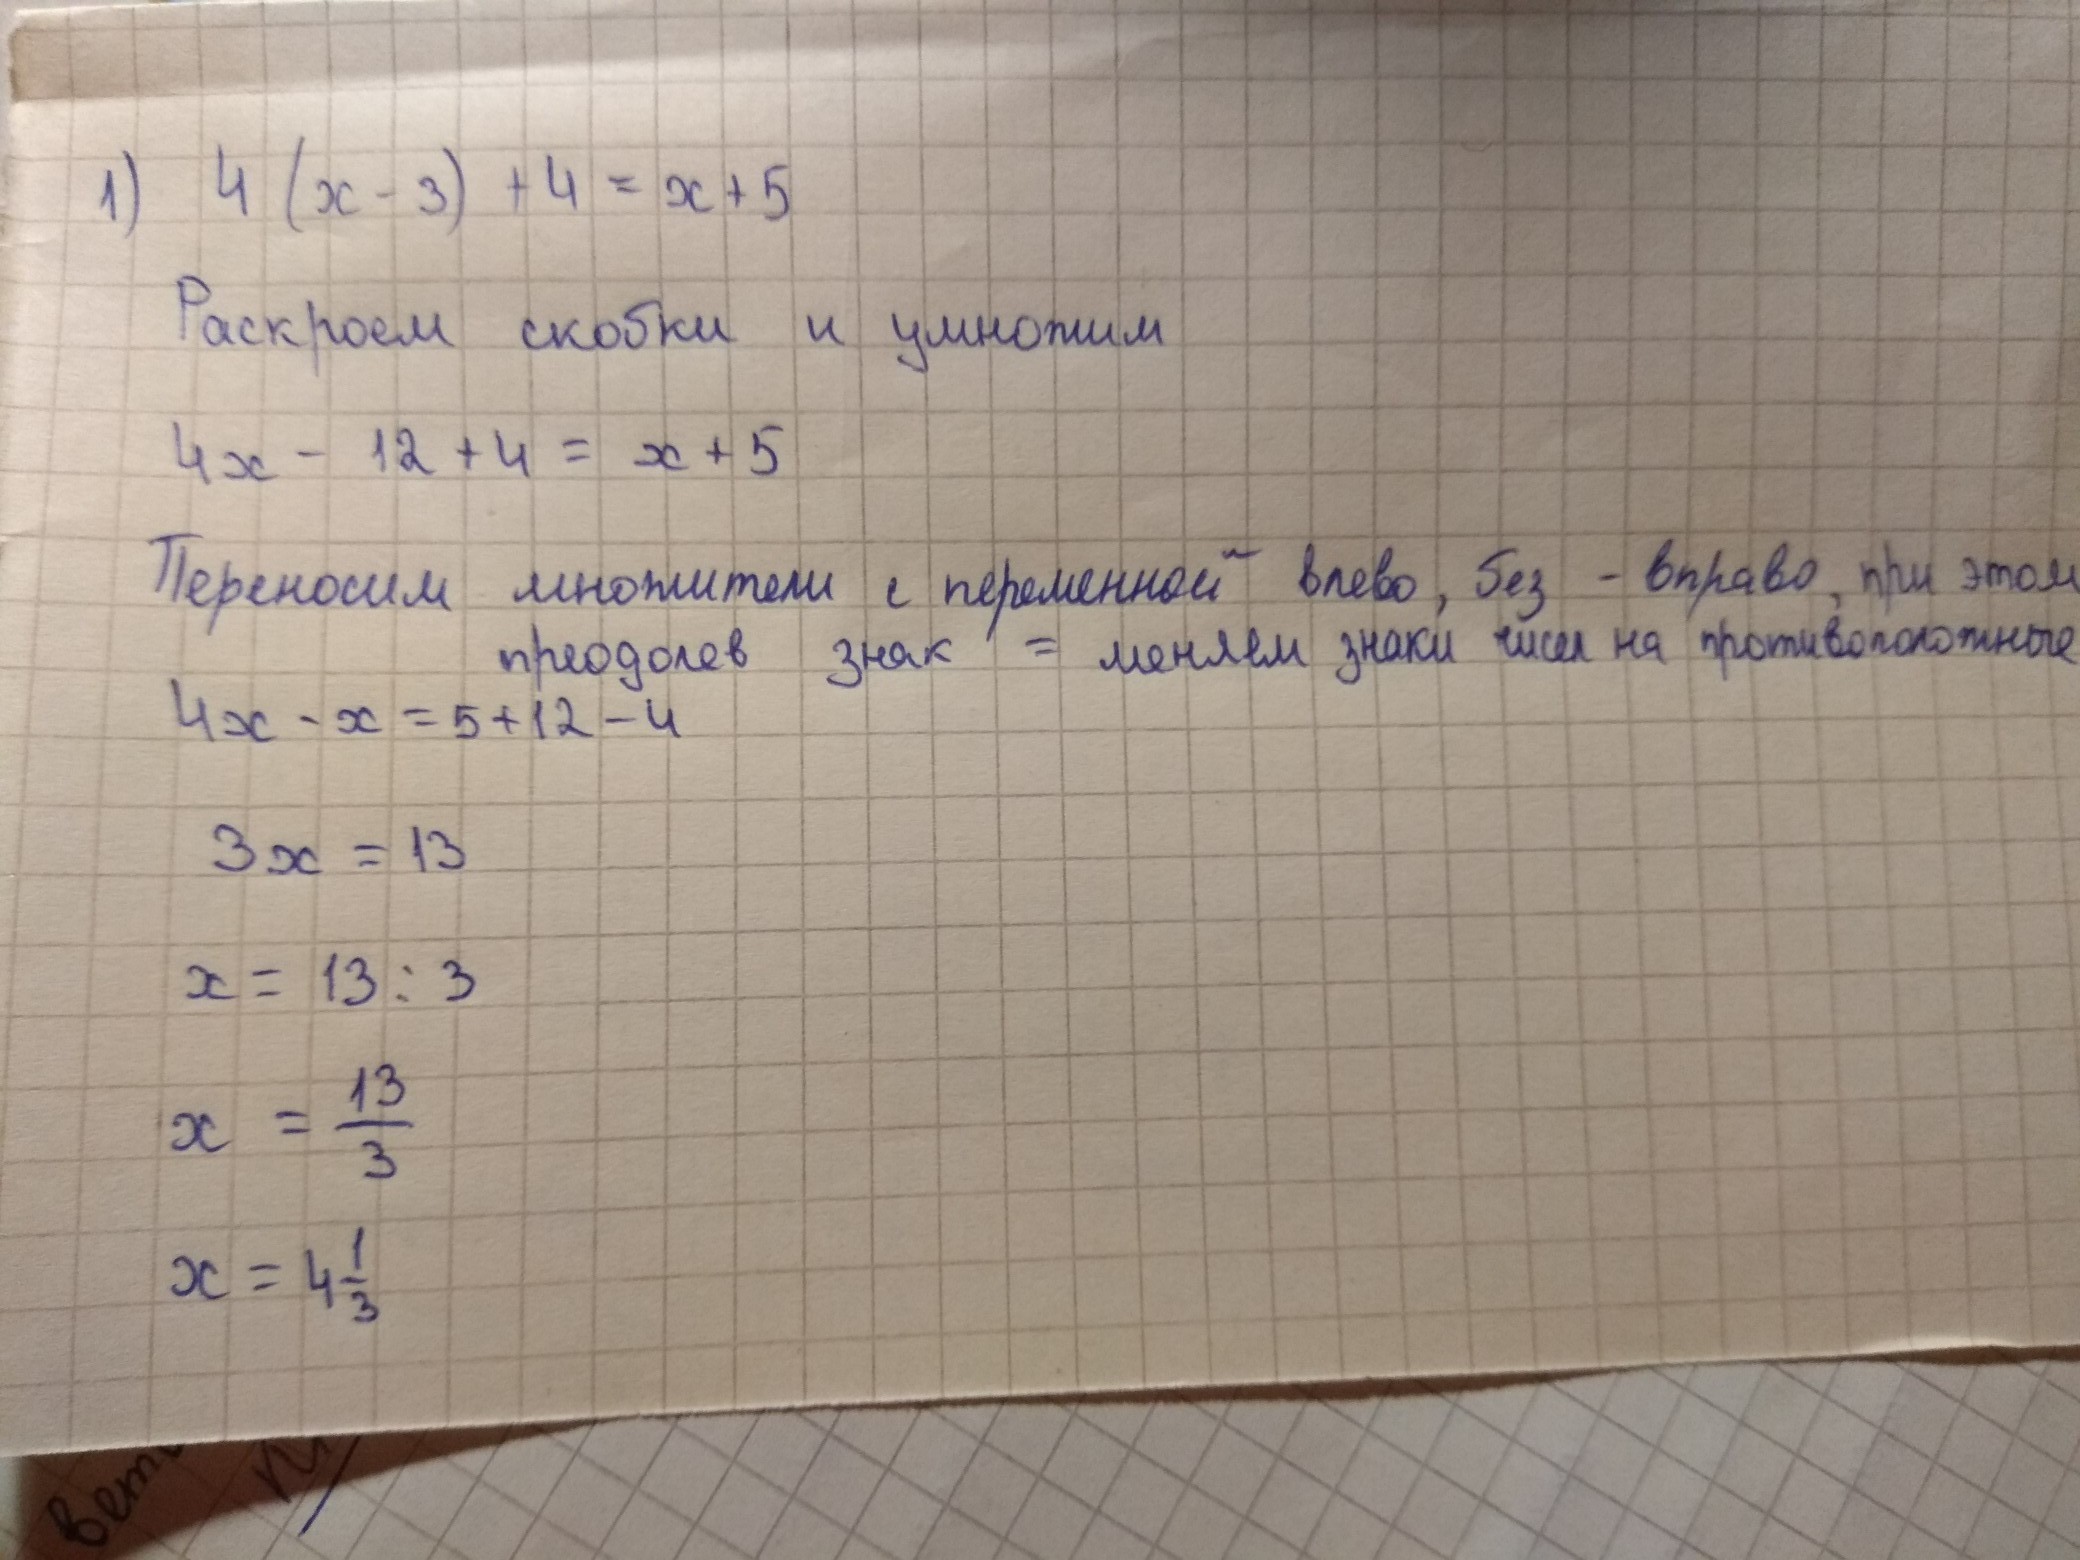 1) 4 (x - 3) + 4 = x + 5
Раскроем скобки и умножим
4x - 12 + 4 = x + 5
Переносим множители с переменной влево, без - вправо, при этом
преодолев знак = меняем знаки чисел на противоположные
4x - x = 5 + 12 - 4
3x = 13
x = 13 : 3
x = 13/3
x = 4 1/3